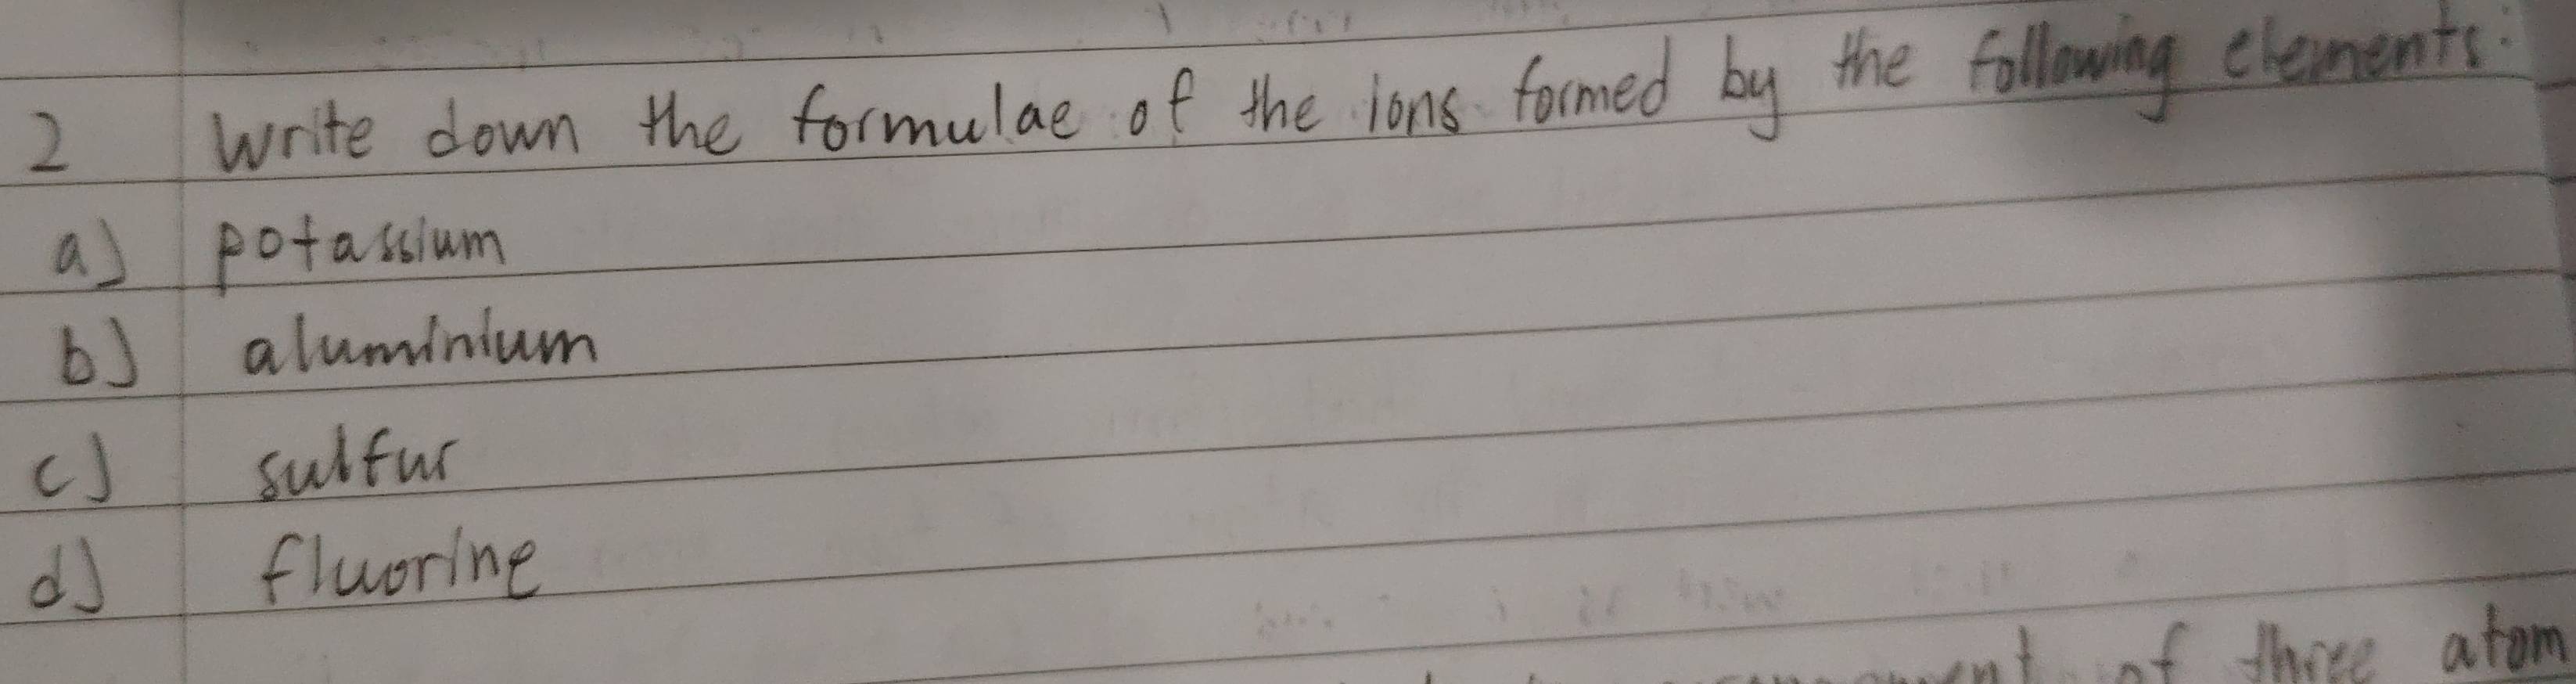 2 Write down the formulae of the ions formed by the following elements:
a) potassium
b) aluminium
c) sulfur
d) fluorine
of three atom